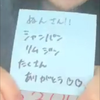 めんさん！
シャンパン
リムジン
たくさん
ありがとう♡♡